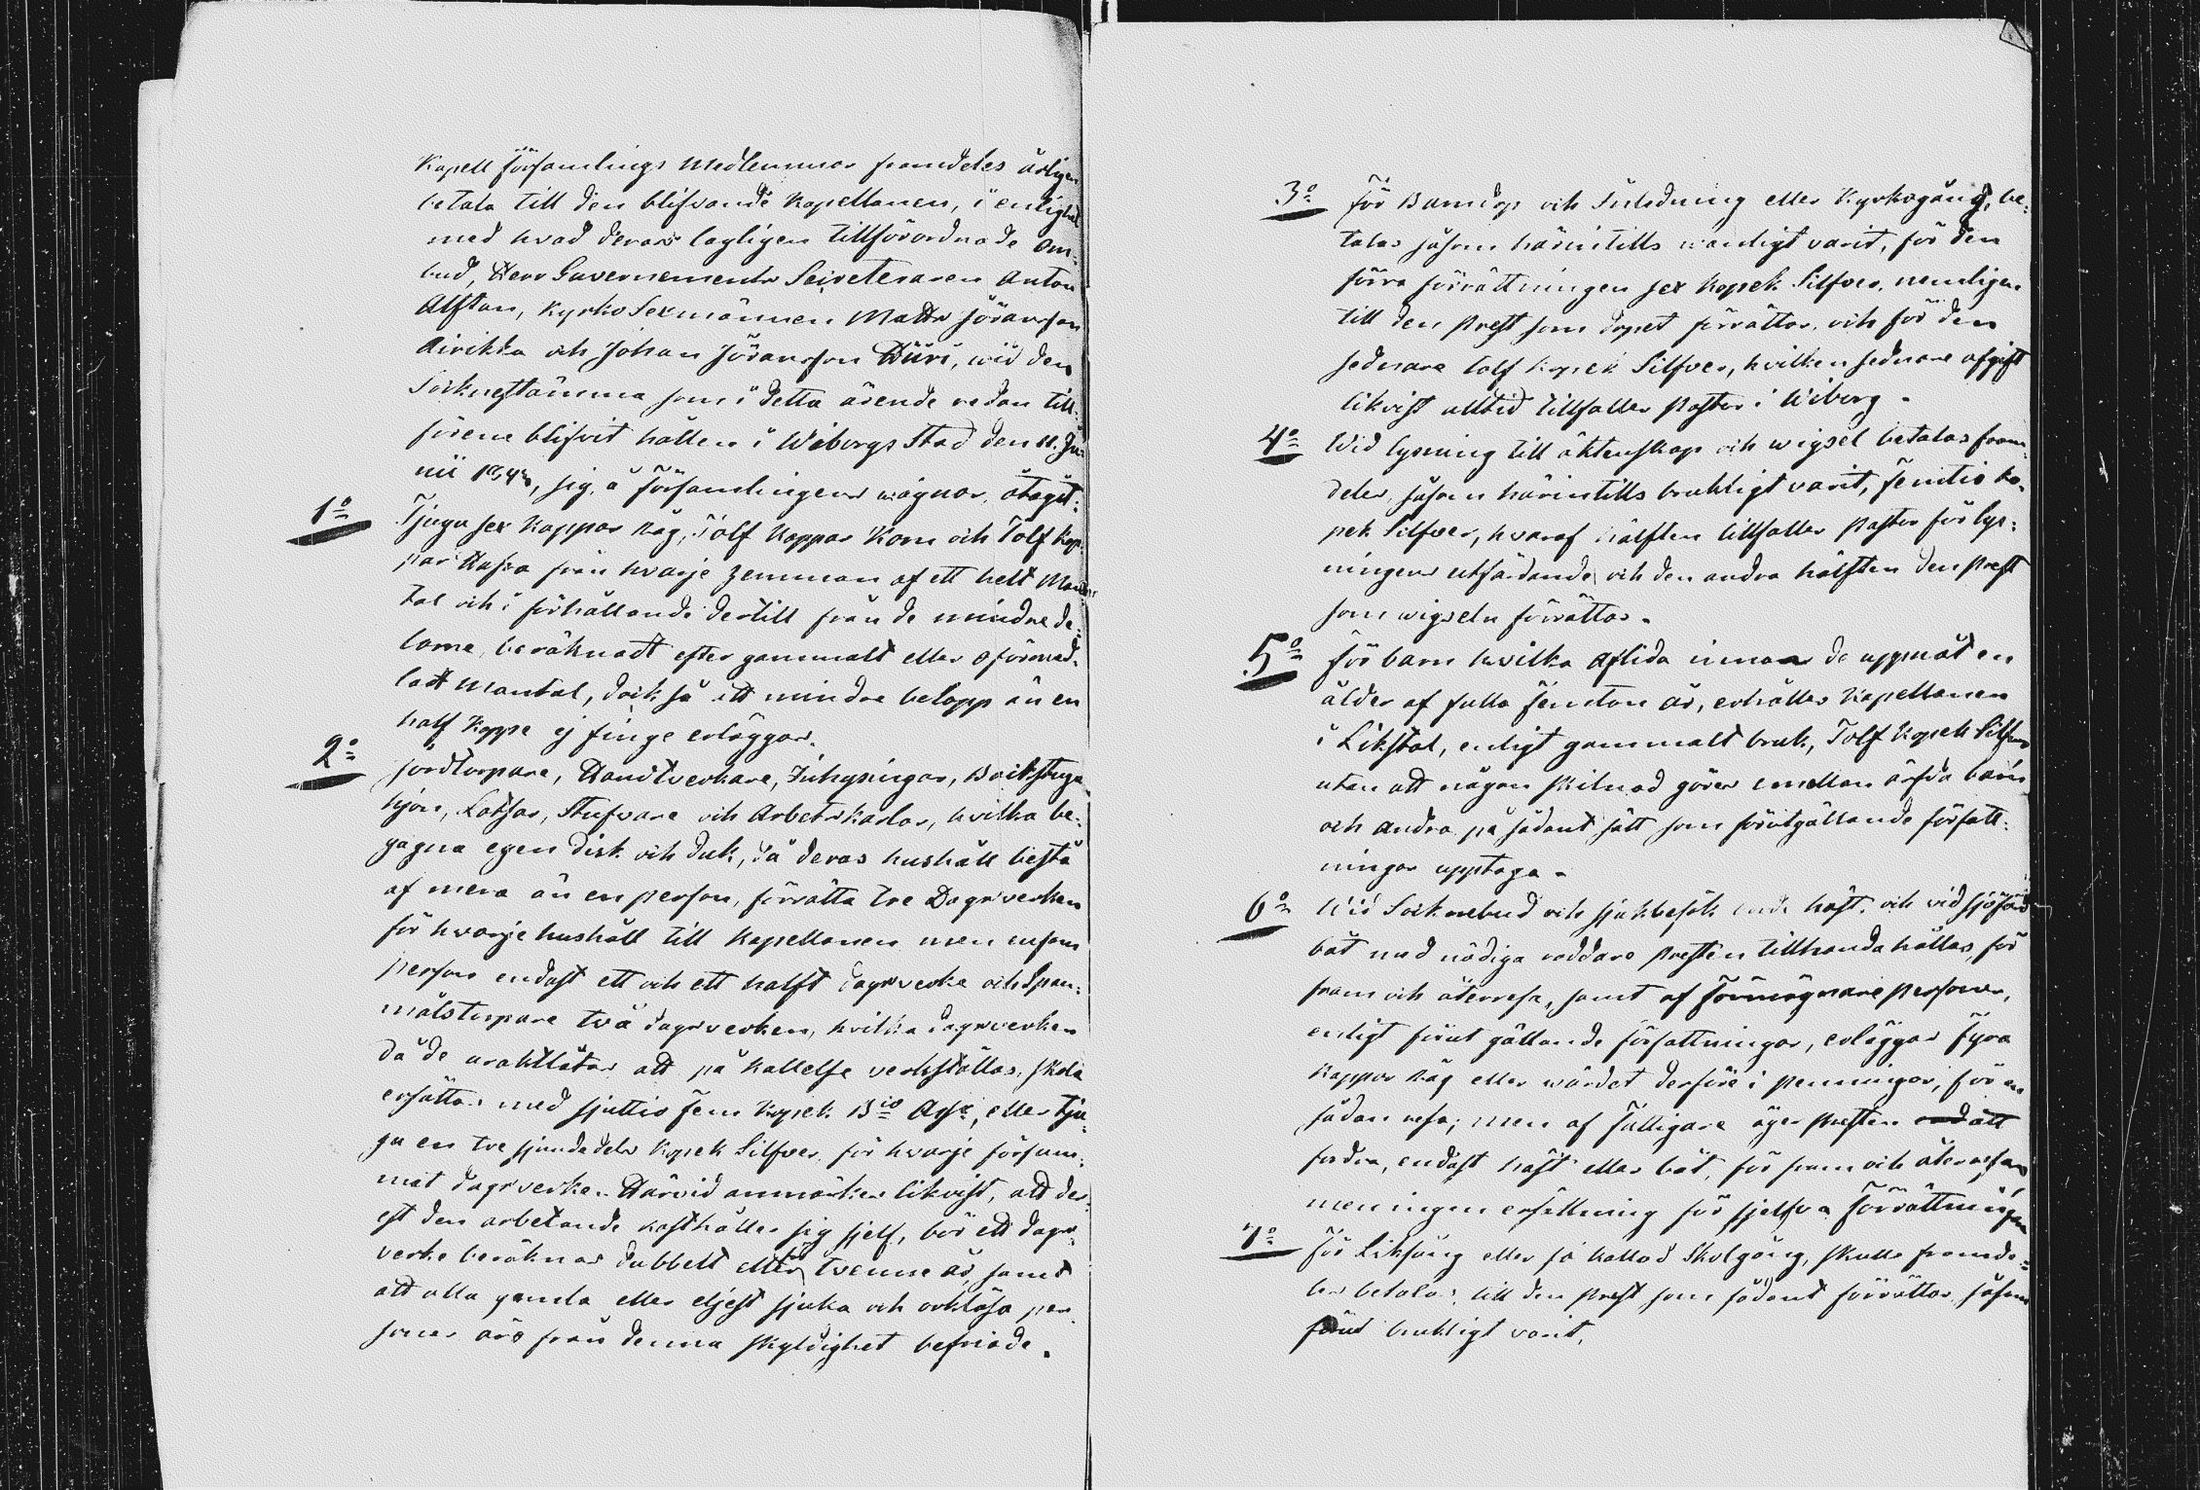 Kapell Församlings Medlemmar framdeles årligen
betala till den blifvande Kapellanen, i enlighet
med hvad deras lagligen tillförordnade Om-
bud, Herr Guvernements Secreteraren Anton
Alftan, Kyrko Sexmännen Matts Jöransson
Airikka och Johan Jöransson Hüri, wid den
Sockenstämma som i detta ärende redan till-
förene blifvit hållen i Wiborgs Stad den 11. Ju-
nii 1843, sig, å Församlingens wägnar, åtagit:
1o Tjugu sex Kappar Råg, Tolf Kappar Korn och Tolf Kap-
par Hafra från hvarje Hemman af ett helt Man-
tal och i förhållande dertill från de mindre de-
larne, beräknadt efter gammalt eller oförmed-
ladt Mantal, dock så att mindre belopp än en
half Kappe ej finge erläggas.
2o Jordtorpare, Handtverkare, Inhysingar, Backstugu-
hjon, Lotsar, Stufvare och Arbetskarlar, hvilka be-
gagna egen disk och duk, då deras hushåll bestå
af mera än en person, förrätta tre Dagsverken
för hvarje hushåll till Kapellanen men ensam
person endast ett och ett halft dagsverke och Span-
målstorpare två dagsverken, hvilka dagsverken
då de uraktlåtas att på kallelse verkställas, skola
ersättas med sjuttio fem Kopek Bco Asse, eller tju-
gu en tre sjundedels Kopek Silfver, för hvarje försum-
mat dagsverke. Härvid anmärkes likvist, att der-
est den arbetande kosthåller sig sjelf, bör ett dags-
verke beräknas dubbelt eller för tvenne år, samt
att alla gamla eller eljest sjuka och orklösa per-
soner äro från denna skyldighet befriade.
3o För Barndop och Inledning eller Kyrkogång, be-
talas såsom härintills wanligt varit, för den
förra förrättningen sex Kopek Silfver, nemligen
till den Prest som dopet förrättar, och för den
sednare tolf Kopek Silfver, hvilken sednare afgift
likvist alltid tillfaller Pastor i Wiborg.
4o Wid lysning till äktenskap och wigsel betalas fram-
deles, såsom härintills brukligt varit, Femtio Ko-
pek Silfver, hvaraf hälften tillfaller Pastor för lys-
ningens utfärdande, och den andra hälften den Prest
som wigseln förrättar.
5o För barn hvilka aflida innan de uppnåt en
ålder af fulla femton år, erhåller Kapellanen
i Likstol, enligt gammalt bruk, Tolf Kopek Silfver
utan att någon skilnad göres emellan ärfda barn
och andra på sådant sätt som förutgällande författ-
ningar upptaga.
6o Wid Socknebud och sjukbesök bude häst, och vid sjöfärd
båt med nödiga roddare Presten tillhanda hållas, för
fram och återresa, samt af Förmögnare personer,
enligt förut gällande författningar, erläggas Fyra
Kappar Råg eller wärdet derföre i penningar, för en
sådan resa; men af Fattigare äger Presten att
fordra, endast häst eller båt, för fram och återresan
men ingen ersättning för sjelfva Förrättningen.
7o För Liksång eller så kallad Skolgång, skulle framde-
les betalas till den Prest som sådant förrättar, såsom
förut brukligt varit.